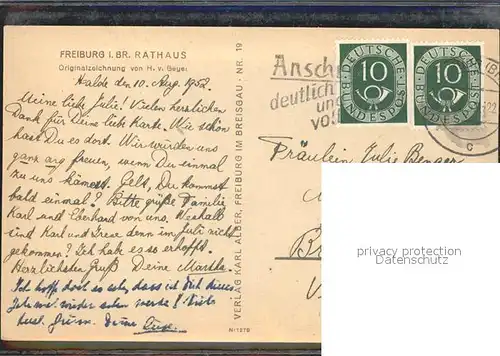 FREIBURG I. BR. RATHAUS
Originalzeichnung von H. v. Geyer
Halde den 10. Aug. 1952.
Meine liebe Julie! Vielen herzlichen
Dank für Deine liebe Karte. Wie schön
hast Du es dort. Wir würden uns
ganz arg freuen, wenn Du einmal
zu uns kämest. Gelt, Du kommst
bald einmal? Bitte grüße Familie
Karl und Eberhard von uns. Weshalb
sind Karl und Grese denn im Juli nicht
gekommen? Ich hab es so erhofft.
Herzlichsten Gruß Deine Martha.
Ich hoffe doch so sehr, dass ich dich dieses
Jahr mal wieder sehen werde! Viele
Grüsse. Deine
VERLAG KARL ALBER, FREIBURG IM BREISGAU · NR. 19
N/1278
Ansch
deutlich
un
vo
DEUTSCHE
BUNDESPOST
10
DEUTSCHE
BUNDESPOST
10
(B
52
c
Fräulein Julie Benger
B
V
privacy protection
Datenschutz